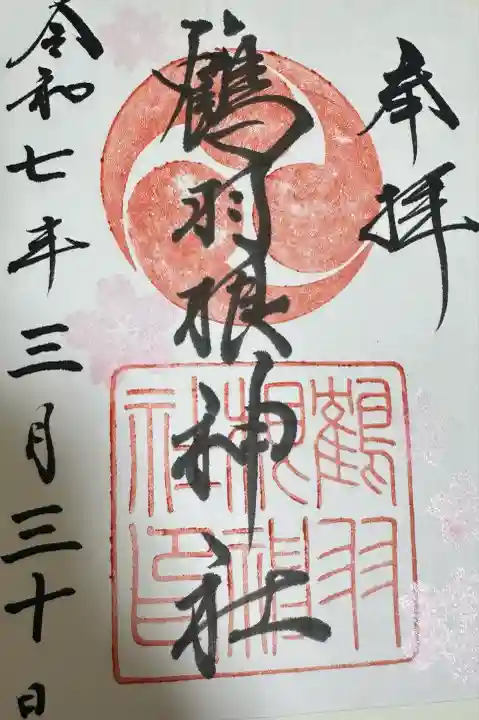 奉拝
鶴羽根神社
令和七年三月三十日
鶴羽
根神
社印